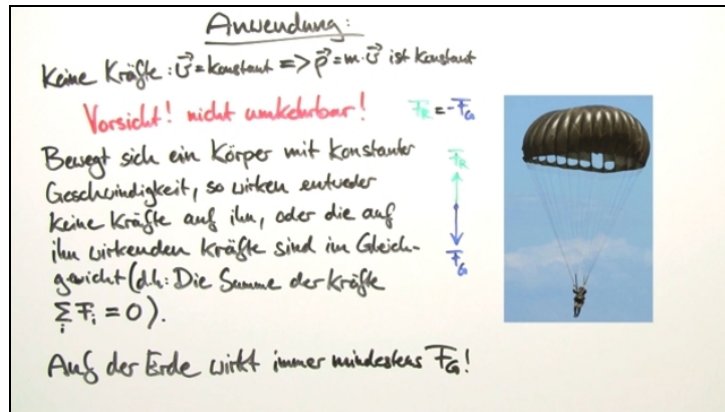 Anwendung:
Keine Kräfte: v⃗ = konstant => p⃗ = m·v⃗ ist konstant
Vorsicht! nicht umkehrbar!
F_R = -F_G
Bewegt sich ein Körper mit konstanter
Geschwindigkeit, so wirken entweder
keine Kräfte auf ihn, oder die auf
ihn wirkenden Kräfte sind im Gleich-
gewicht (d.h: Die Summe der Kräfte
∑_i F_i = 0).
F_R
F_G
Auf der Erde wirkt immer mindestens F_G!